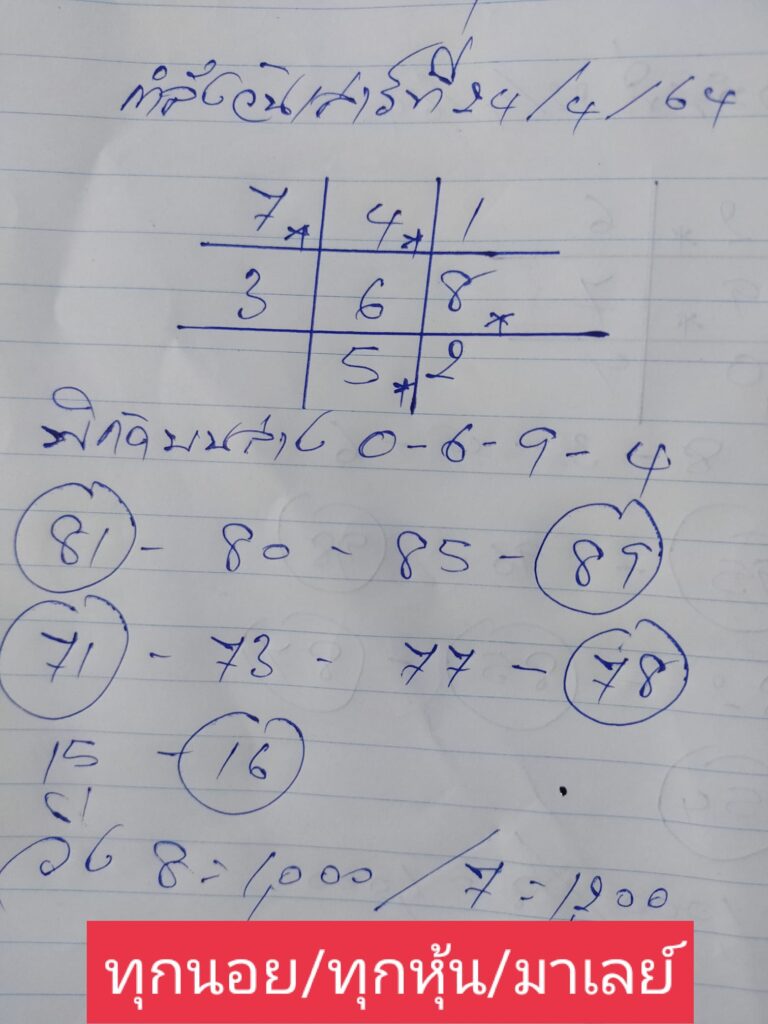 กำลังวันเสาร์ที่ 24/4/64
7* 4* 1
3 6 8*
5* 2
พิกัดบนล่าง 0-6-9-4
81 - 80 - 85 - 89
71 - 73 - 77 - 78
15 - 16
61
วิ่ง 8=1,000/7=1,200
ทุกนอย/ทุกหุ้น/มาเลย์